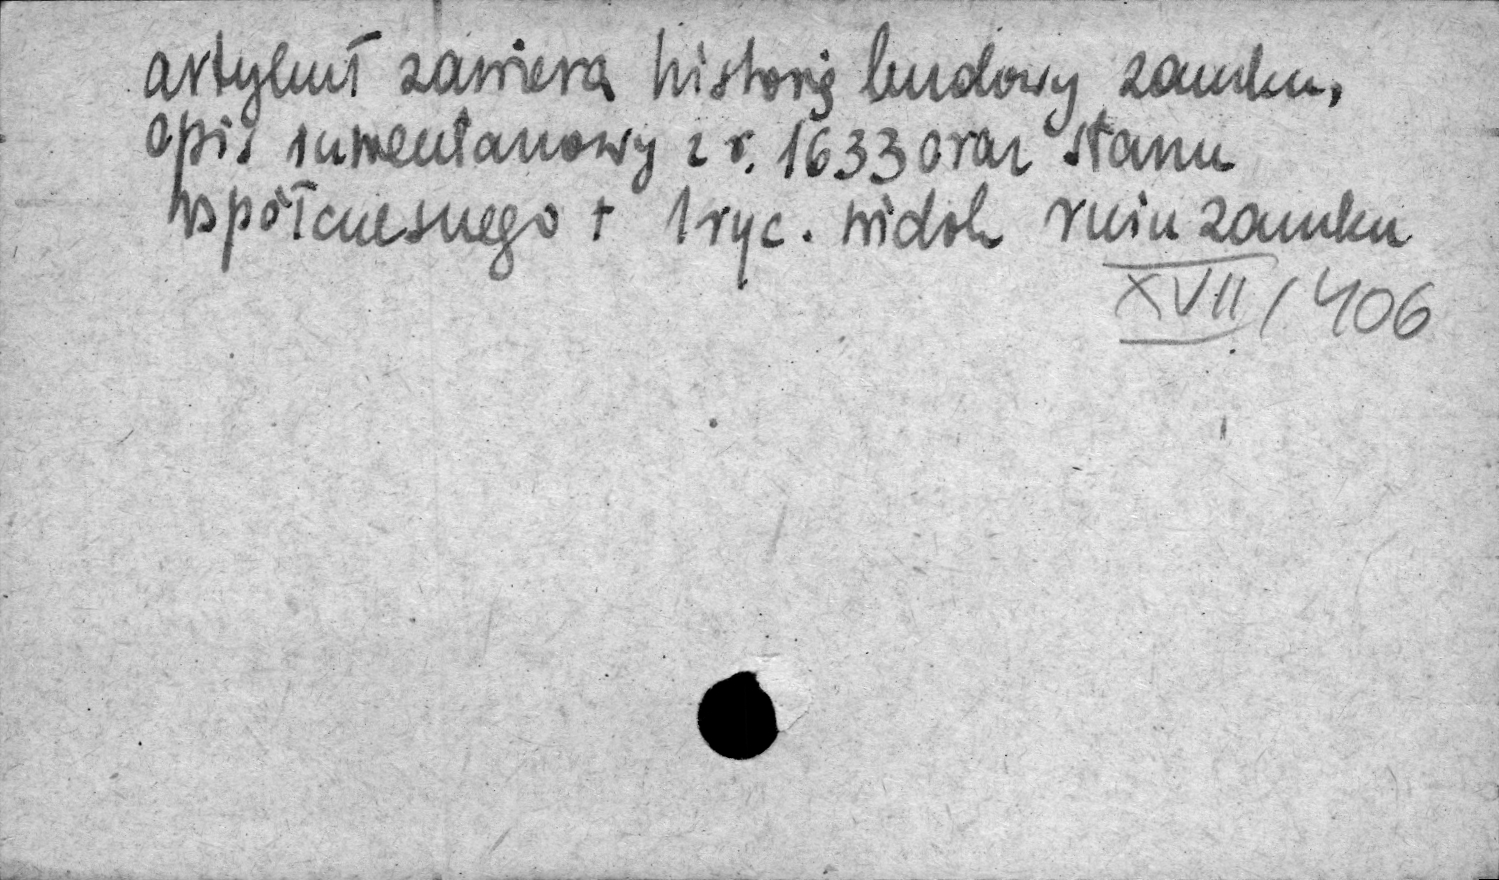 artykuł zawiera historię budowy zamku,
opis inwentarzowy z r. 1633 oraz stanu
współczesnego + 1 ryc. widok ruin zamku
XVII/406